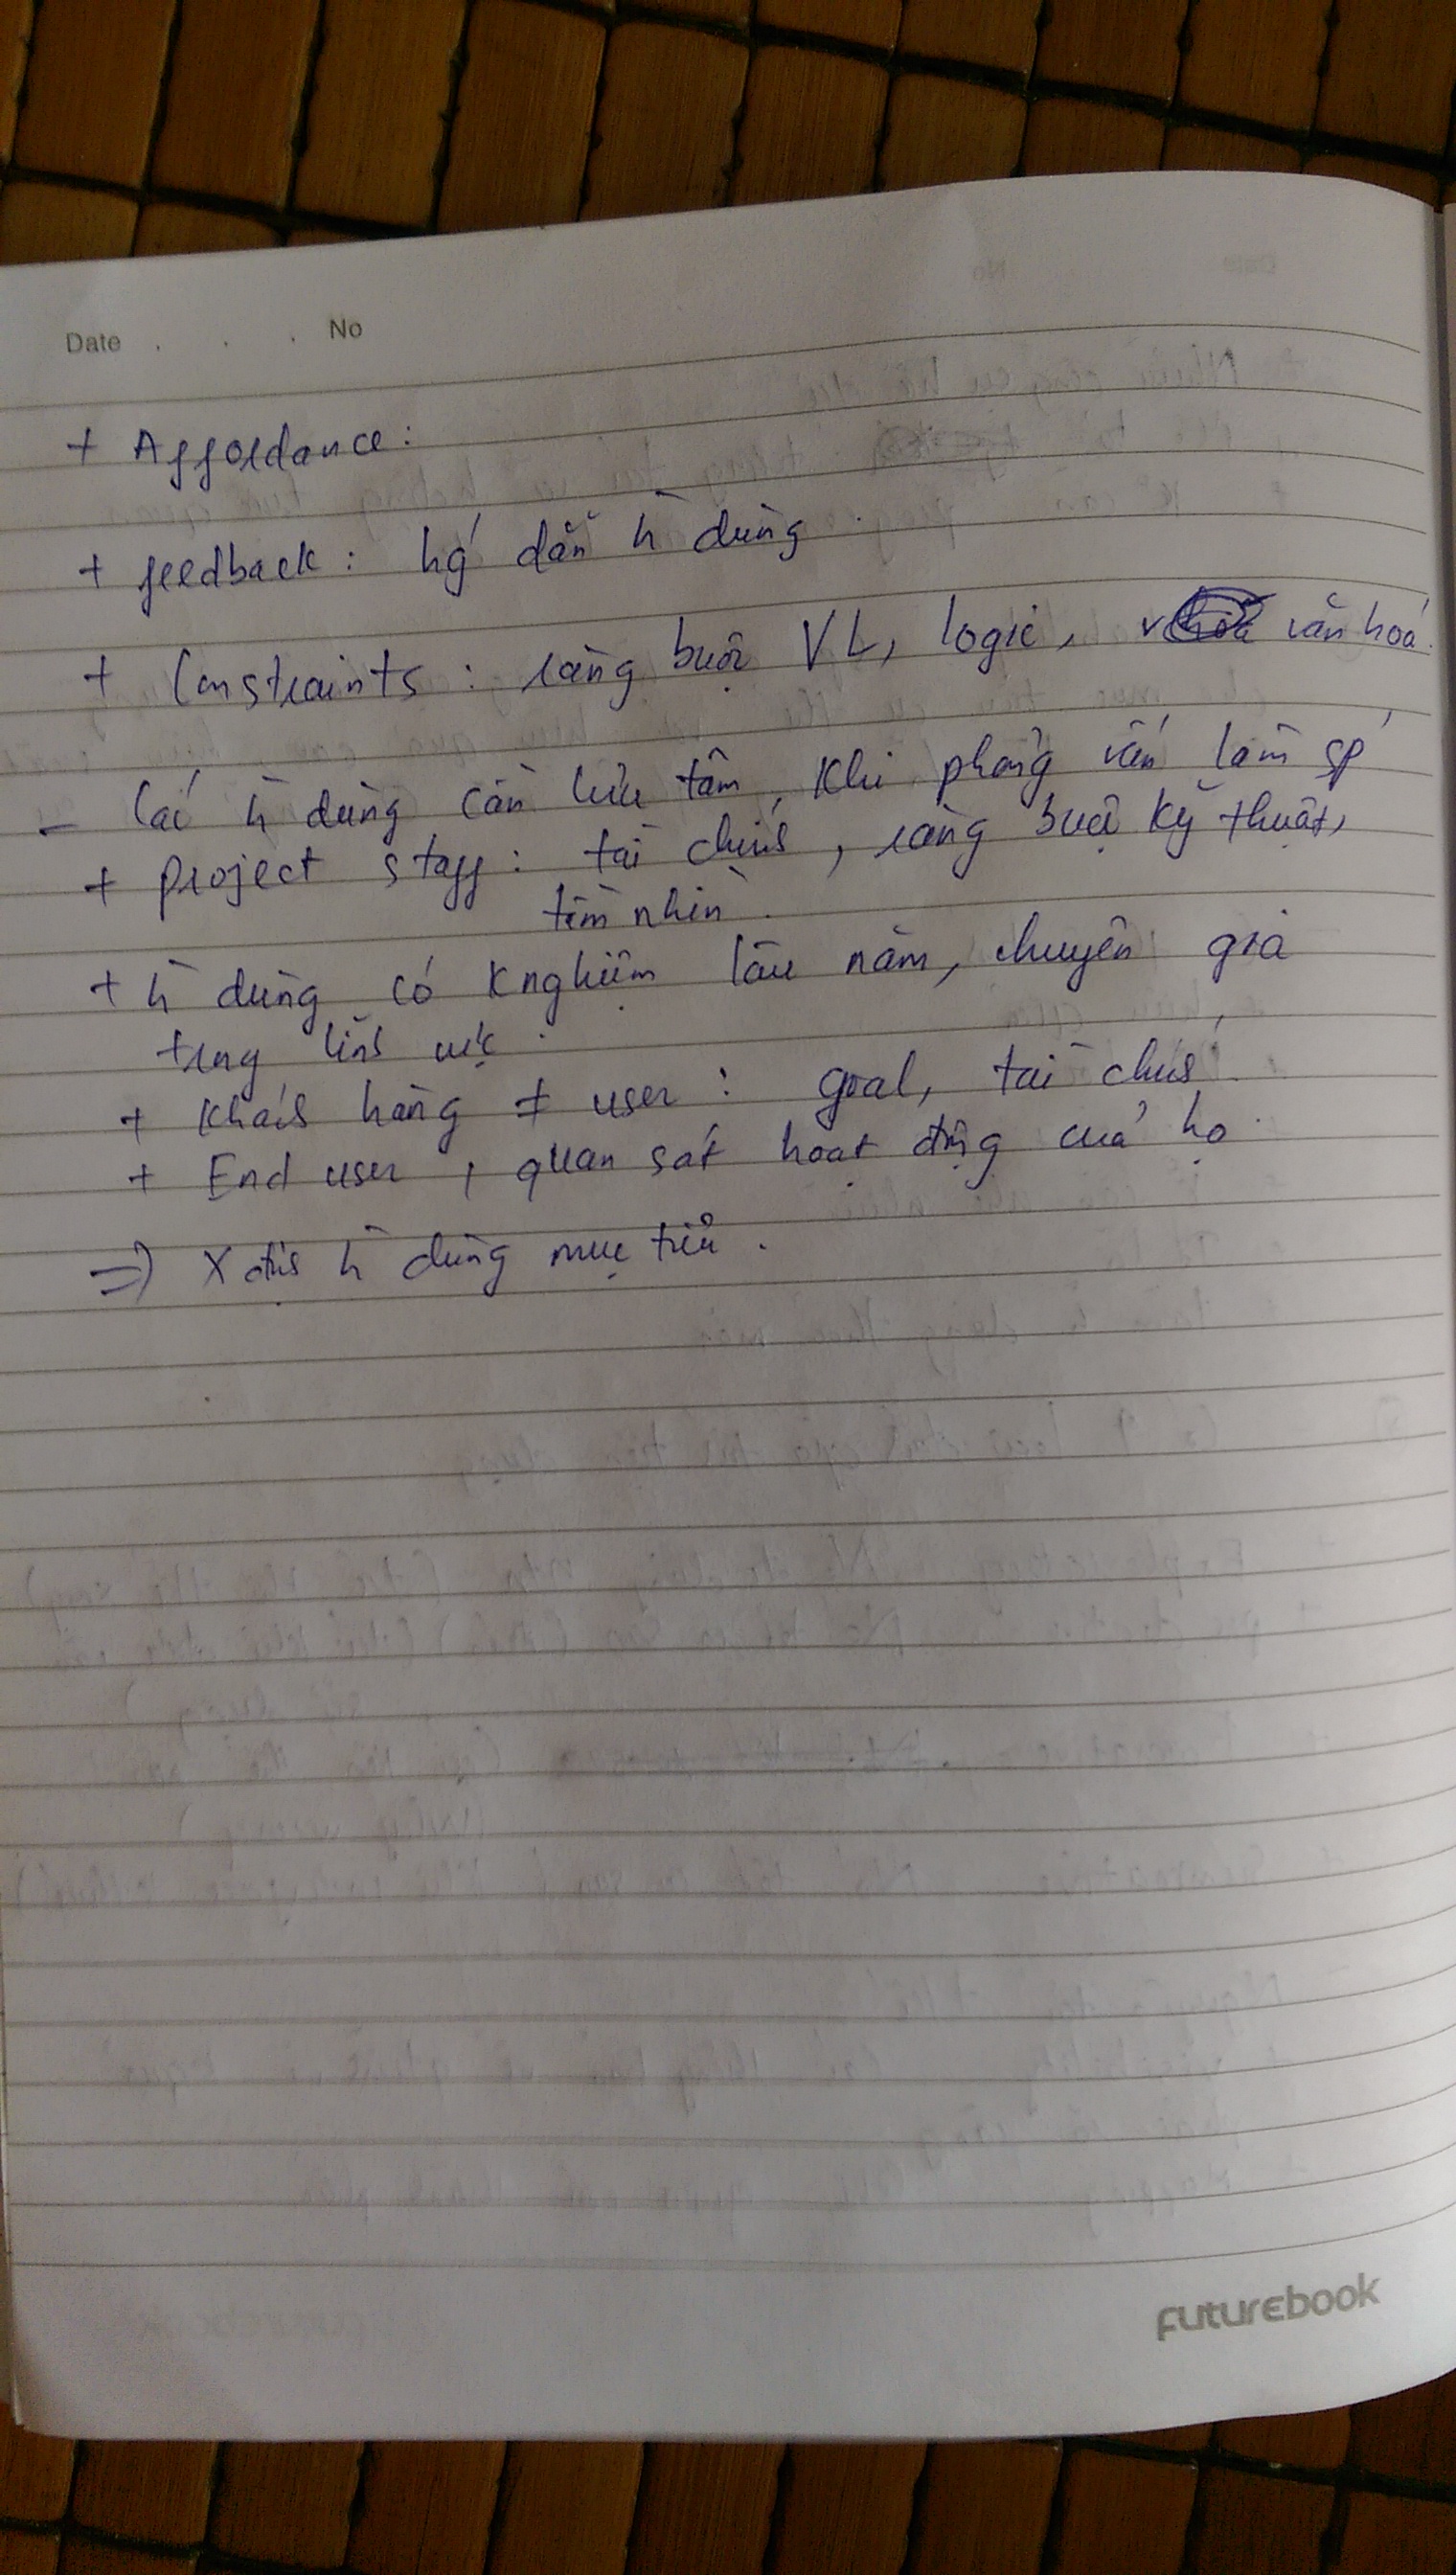 Date . . . No
+ Affordance:
+ feedback: hg´ dẫn ng̀ dùng
+ Constraints: ràng buộc VL, logic, văn hoá.
- Các ng̀ dùng cần lưu tâm, khi phỏng vấn làm sp
+ project staff: tài chính, ràng buộc kỹ thuật,
tầm nhìn.
+ ng̀ dùng có k nghiệm lâu năm, chuyên gia
trong lĩnh vực.
+ Khách hàng ≠ user: goal, tài chính
+ End user, quan sát hoạt động của họ.
=> X định ng̀ dùng mục tiêu.
futurebook